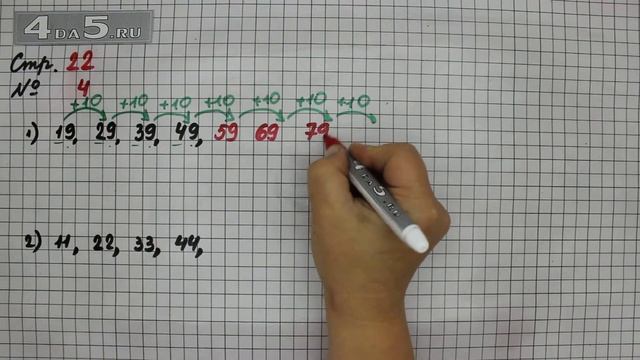 4DA5.RU
Стр. 22
№ 4
+10 +10 +10 +10 +10 +10 +10
1) 19, 29, 39, 49, 59 69 79
4DA5.RU
2) 11, 22, 33, 44,